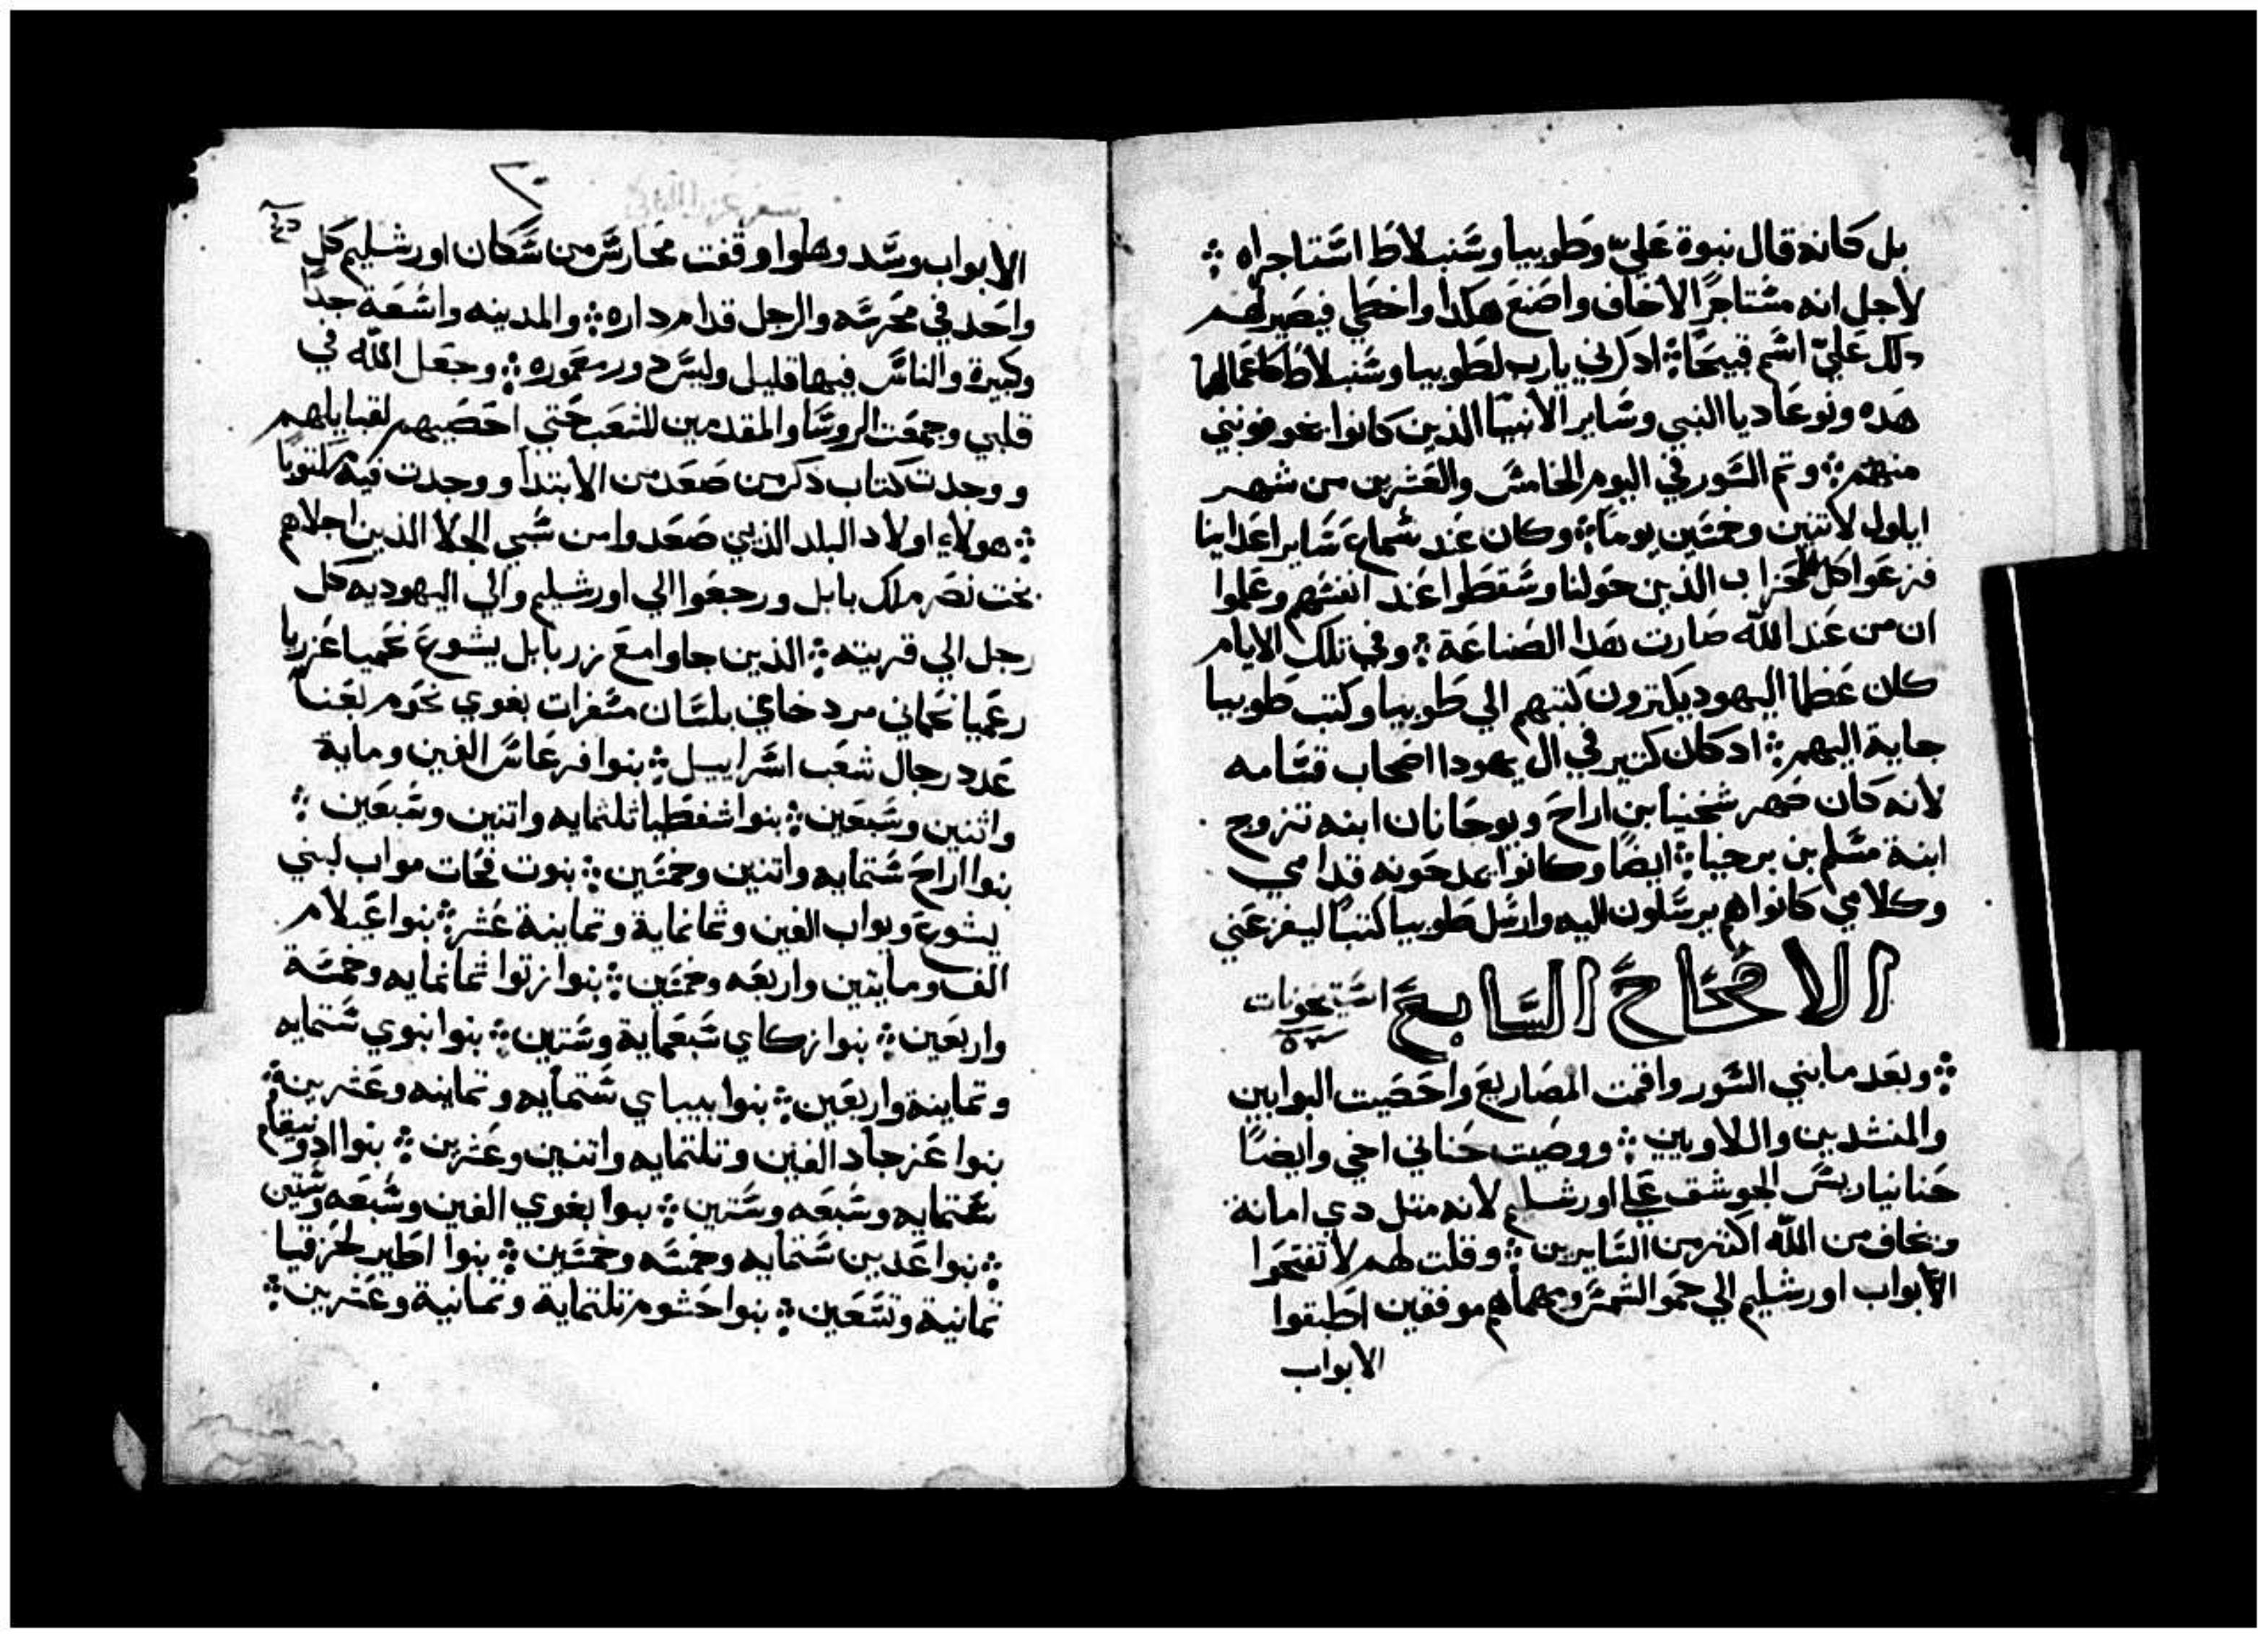 بل كانه قال نبوة عليّ وطوبيا وسنبلاط استاجراه ؞
لاجل انه مستاجرًا لاخاف واصنع هكذا واخطي فيصير لهم
دلك عليّ اسم قبيحًا ؞ ادكرني يارب لطوبيا وسنبلاط كاعمالهما
هده ونوعاديا النبي وساير الانبيا الذين كانوا يخوفونني
منهم ؞ وتم السور في اليوم الخامس والعشرين من شهر
ايلول لاتنين وخمسين يومًا ؞ وكان عند سماع ساير اعداينا
فزعوا كل الاحزاب الذين حولنا وسقطوا عند انفسهم وعلموا
ان من عند الله صارت هدا الصناعة ؞ وفي تلك الايام
كان عظما اليهود يكترون كتبهم الي طوبيا وكتب طوبيا
جاية اليهم ؞ اد كان كتير في ال يهودا اصحاب قسامه
لانه كان صهر شخنيا بن اراح ويوحانان ابنه تزوج
ابنة مسلم بن برخيا ؞ ايضًا وكانوا يمدحونه قدامي
وكلامي كانوا هم يرسلون اليه وارسل طوبيا كتبًا ليفزعني
الاصحاح السابع استيخونات
٥٣
؞ وبعد ما بني السور واقمت المصاريع واحصيت البوابين
والمنشدين واللاويين ؞ ووصيت حناني اخي وايضًا
حنانيا ريس الجوشق علي اورشليم لانه متل دي امانة
وخاف من الله اكتر من السايرين ؞ وقلت لهم لا تفتحوا
الابواب اورشليم الي حمو الشمس ومهما هم موفقين اطبقوا
الابواب
الابواب وسد وهلوا وقفت محارس من سكان اورشليم كل
واحد في محرسه والرجل قدام داره ؞ والمدينه واسعة جدًا
وكبيرة والناس فيها قليل وليس دور معموره ؞ وجعل الله في
قلبي وجمعت الروسا والمقدمين للشعب حتي احصيهم لقبايلهم
ووجدت كتاب ذكر من صعد من الابتدا ووجدت فيه مكتوبًا
؞ هولاء اولاد البلد الذين صعدوا من سبي الجلا الذين اجلاهم
بخت نصر ملك بابل ورجعوا الي اورشليم والي اليهوديه كل
رجل الي قريته ؞ الذين جاوا مع زربابل يشوع نحميا عزريا
رعميا نحماني مردخاي بلسان مسفرات بغوي نحوم بعنا
عدد رجال شعب اسراييل ؞ بنوا فرعاس الفين وماية
واتنين وسبعين ؞ بنوا شفطيا ثلثمايه واتنين وسبعين ؞
بنوا اراح ستمايه واتنين وخمسين ؞ بنوت فحات مواب لبني
يشوع ويواب الفين وثمانماية وتماينة عشر ؞ بنوا عيلام
الف ومايتين واربعه وخمسين ؞ بنوا زتوا ثمانمايه وخمسة
واربعين ؞ بنوا زكاي سبعماية وستين ؞ بنوا بنوي ستمايه
وتماينة واربعين ؞ بنوا بيباي ستمايه وتماينه وعشرين ؞
بنوا عزجاد الفين وتلتمايه واتنين وعشرين ؞ بنوا ادونيقام
ستمايه وسبعه وستين ؞ بنوا بغوي الفين وسبعه وستين
؞ بنوا عدين ستمايه وخمسه وخمسين ؞ بنوا اطير لحزقيا
تمانية وتسعين ؞ بنوا حشوم تلتماية وتمانية وعشرين ؞